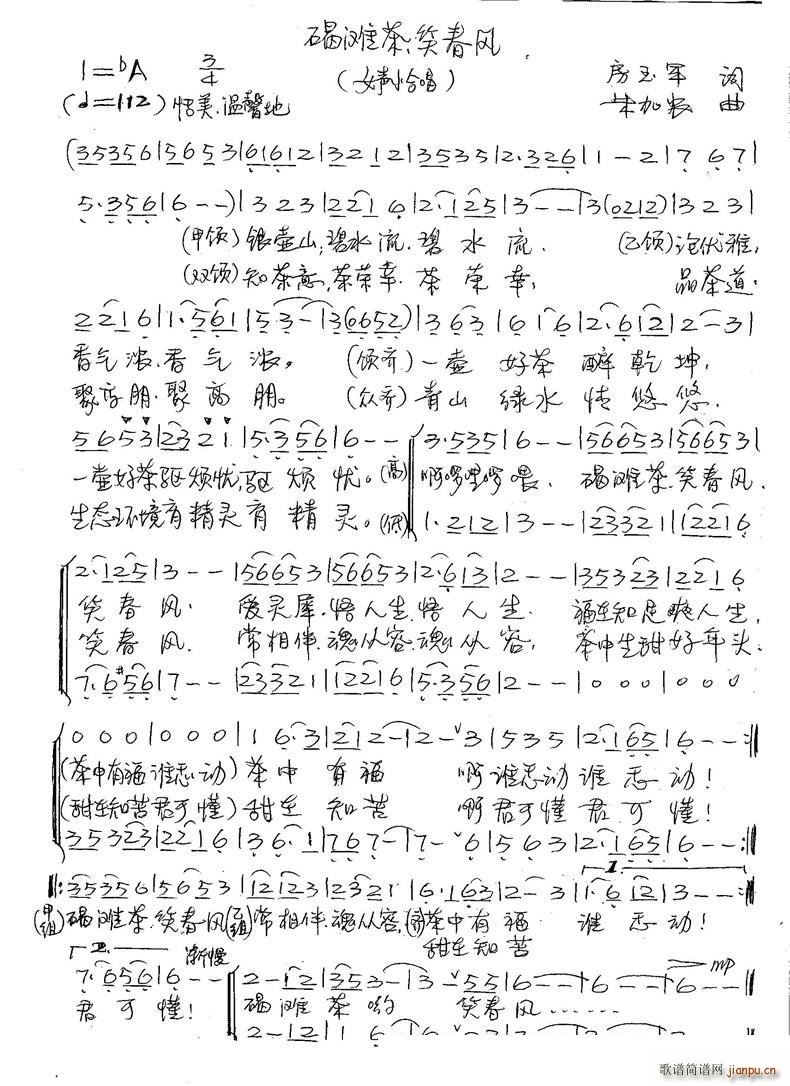 碣滩茶,笑春风
1=♭A 3/4 (女声小合唱) 房玉军 词
(♩=112) 恬美、温馨地 加农 曲
(35356|5653|61612|3212|35353|2·326|1-2|7 67|
5·356|6--)|323|2216|2·125|3--|3(0212)|323|
(甲领)银壶山,碧水流.碧水流. (乙领)沱优雅,
(双领)知茶意,茶荣幸.茶荣幸, 品茶道.
2216|1·561|53-|3(0652)|363|616|2·612|2-3|
香气浓.香气浓。(领齐)一壶好茶醉乾坤,
聚高朋.聚高朋。(众齐)青山绿水情悠悠.
5653|2321|5·356|6--|3·535|6--|56653|56653|
一壶好茶驱烦忧,驱烦忧。(高)啊啰哩啰喂、碣滩茶.笑春风.
生态环境育精灵育精灵。(低)1·212|3--|23321|12216
2·125|3--|56653|56653|2·613|2--|35323|2216
笑春风. 爱灵犀.悟人生.悟人生. 福在知足爽人生,
笑春风. 常相伴.魂从容.魂从容, 茶中生甜好年头.
7·6#56|7--|23321|12216|5·356|2--|000|000
000|000|16·3|212-|2-ᵛ3|535|2·165|6--:‖
(茶中有福谁忘动)茶中有福 啊谁忘动谁忘动!
(甜在知苦君可懂)甜在知苦 啊君可懂君可懂!
35323|2216|36·1|767-|7-ᵛ6|563|2·165|6--:‖
1.
‖:35356|5653|12123|2321|6·163|2-3|1·612|3--:‖
(甲组)碣滩茶.笑春风(乙组)常相伴.魂从容,(齐)茶中有福 谁忘动!
2. 渐慢 甜在知苦
mp
7·656|6--|2-12|353-|3-ᵛ|556-|6--|6--‖
君可懂! 碣滩茶哟 笑春风……
歌谱简谱网
jianpu.cn